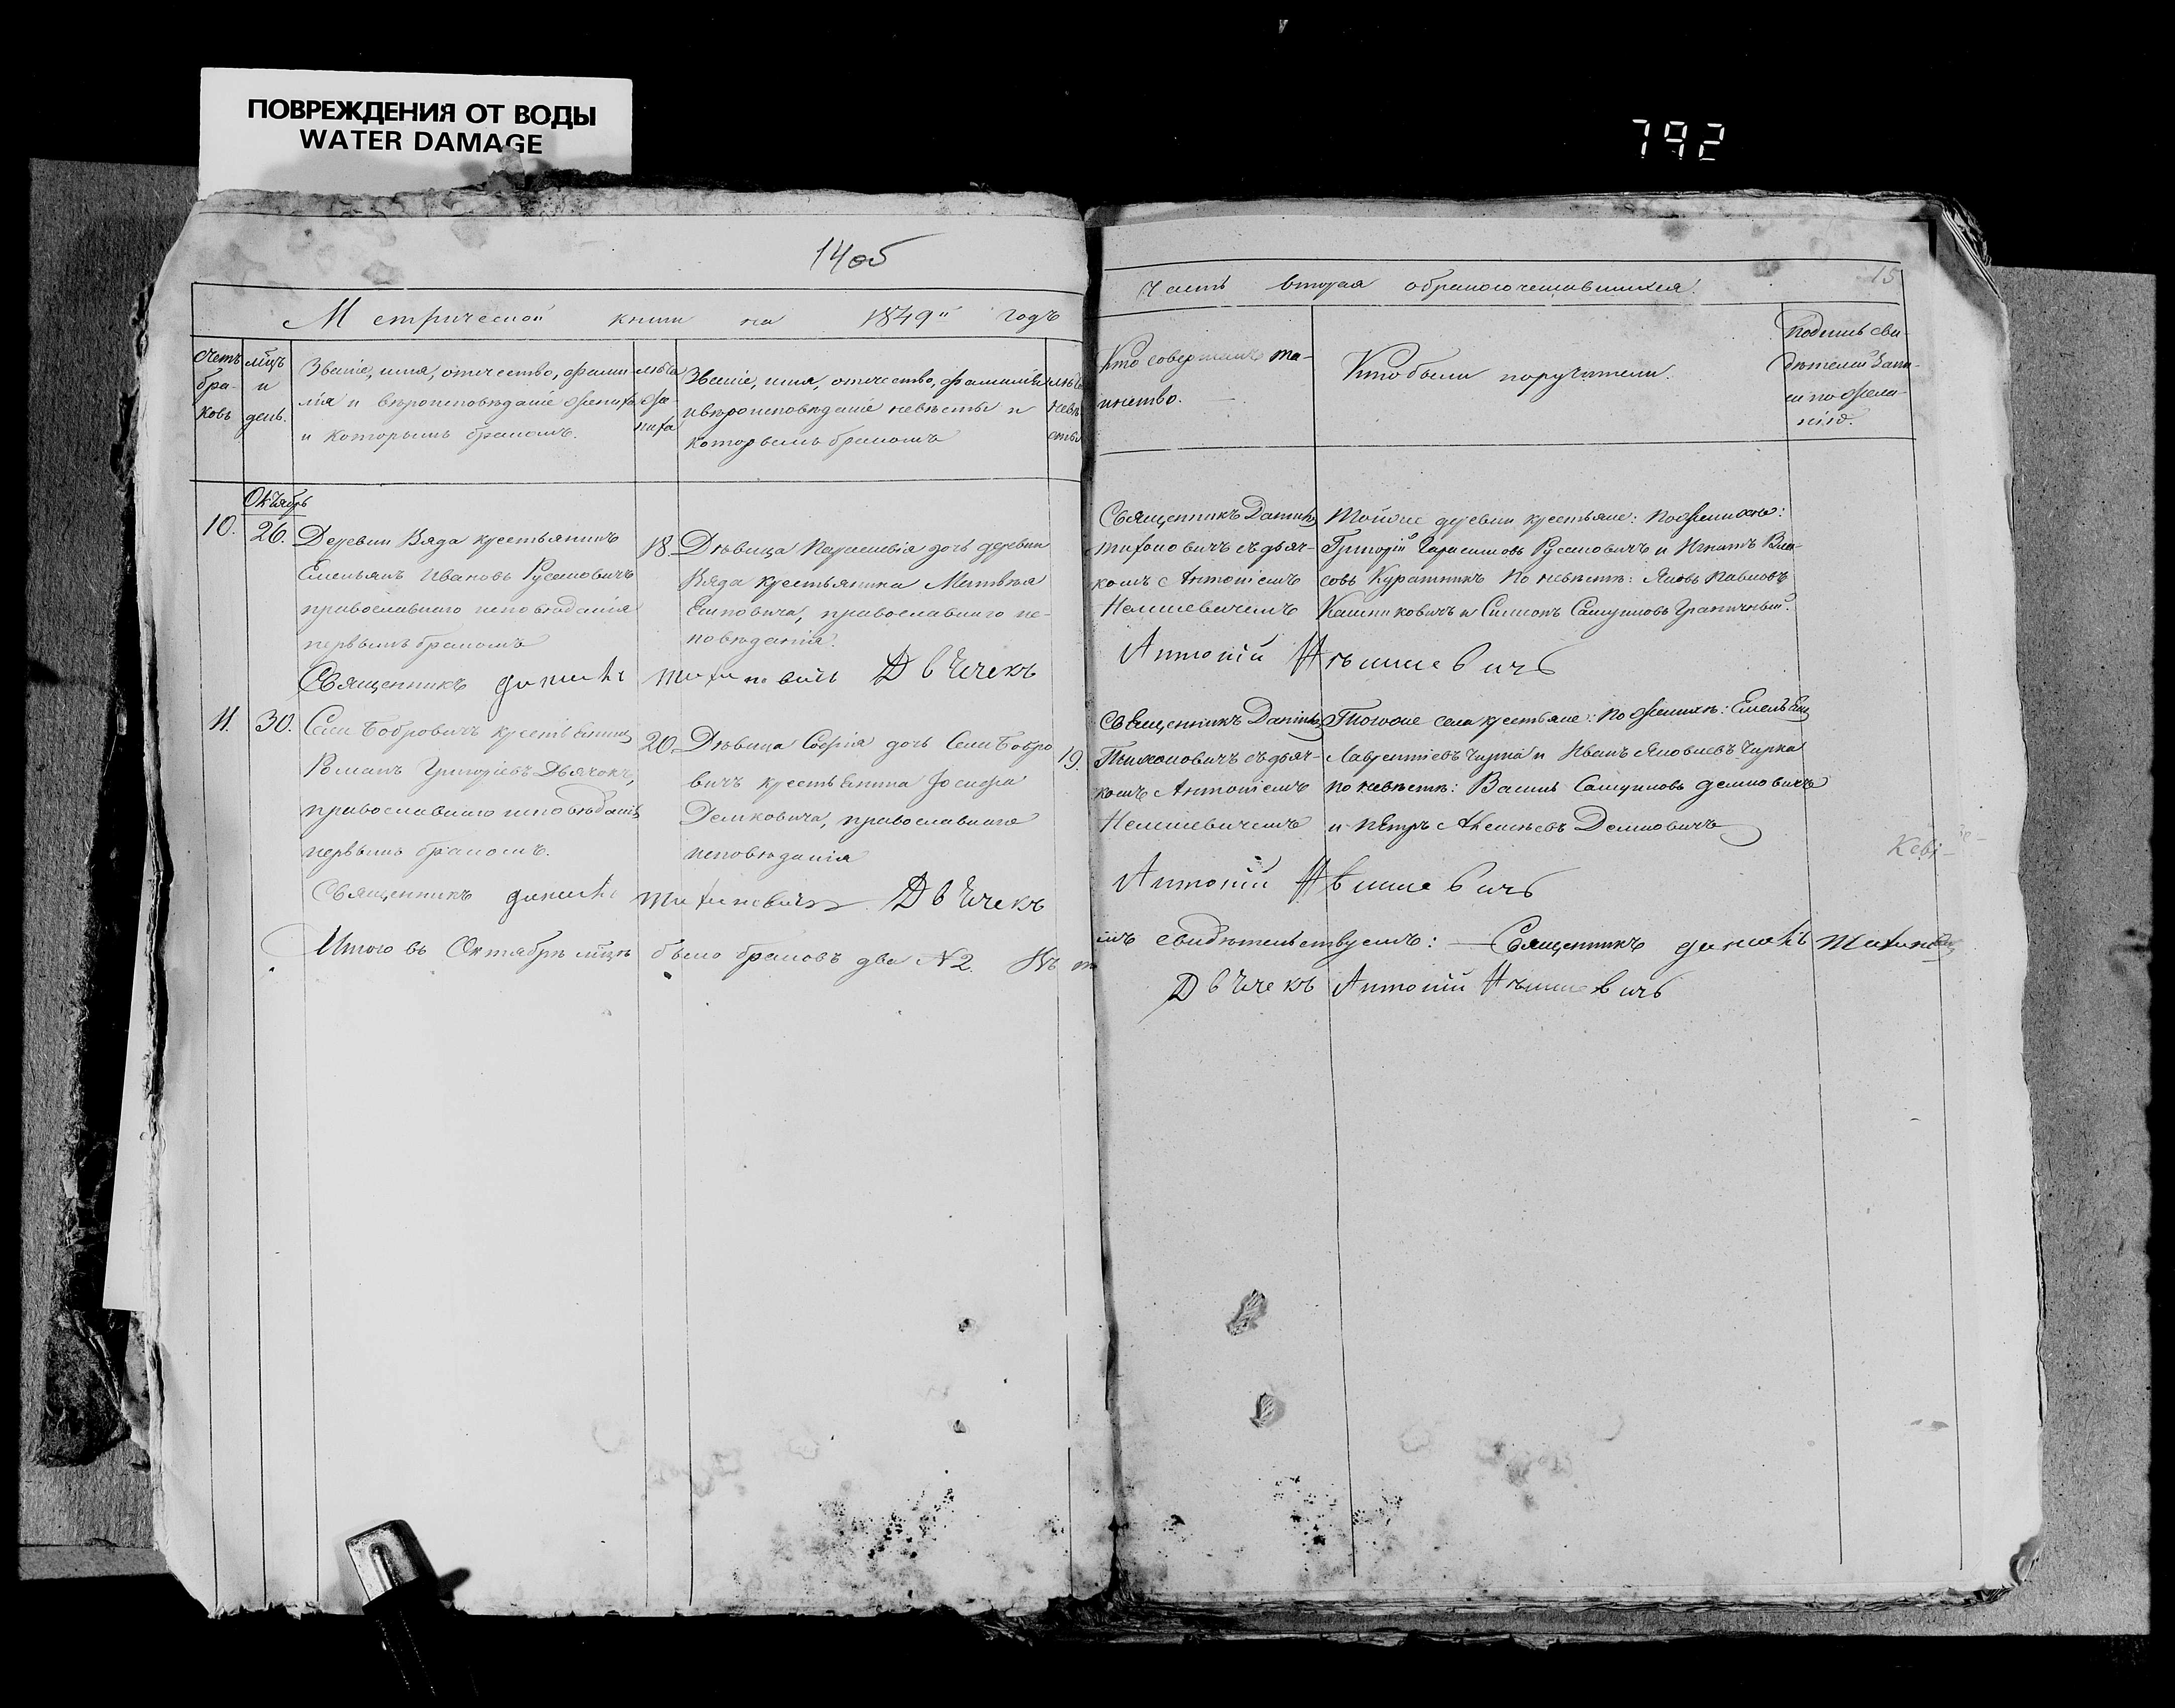 ПОВРЕЖДЕНИЯ ОТ ВОДЫ
WATER DAMAGE
792
14об
15
Метрической книги на 1849й годъ
Часть вторая о бракосочетавшихся.
Счетъ браковъ
мцъ и день.
Званіе, имя, отечество, фами-
лія и вѣроисповѣданіе жениха
и которымъ бракомъ.
лѣта же-
ниха
Званіе, имя, отечество, фамилія
и вѣроисповѣданіе невѣсты и
которымъ бракомъ
лѣта
невѣ
сты
Кто совершалъ та-
инство.
Кто были поручители.
подпись сви-
дѣтелей запи-
си по жела-
нію.
Октябрь
10. 26.
Деревни Вяда крестьянинъ
Емельянъ Ивановъ Русаковичъ
православнаго исповѣданія
первымъ бракомъ
18.
Дѣвица Параскевія дочь деревни
Вяда крестьянина Матвѣя
православнаго ис-
повѣданія.
Священникъ Даніилъ
Тихоновичъ съ дьяч-
комъ Антоніемъ
Немшевичемъ
Тойже деревни крестьяне: по женихѣ:
Григорій Гарасимовъ Русаковичъ и Игнатъ Вла-
совъ Куратникъ По невѣстѣ: Яковъ Павловъ
и Симонъ Самуиловъ
Священникъ Даніилъ Тихоновичъ Дьячекъ
Антоній Нѣмшевичъ
11. 30.
Села Бобровичъ крестьянинъ
Романъ Григоріевъ Дьячокъ,
православнаго исповѣданія
первымъ бракомъ.
20.
Дѣвица Софія дочь Села Бобро
вичъ крестьянина Іосифа
Демковича, православнаго
исповѣданія
19.
Священникъ Даніилъ
Тихоновичъ съ дьяч-
комъ Антоніемъ
Немшевичемъ
Тогоже села крестьяне: по женихѣ: Емельянъ
Лаврентіевъ Чирка и Иванъ Яковлевъ Чирка
по невѣстѣ: Василь Самуиловъ Демковичъ
и Петръ Алексѣевъ Демковичъ
Священникъ Даніилъ Тихоновичъ Дьячекъ
Антоній Нѣмшевичъ
Итого въ Октябрѣ мцѣ было браковъ два №2. Въ томъ свидѣтельствуемъ: Священникъ Даніилъ Тихоновичъ
Дьячекъ Антоній Нѣмшевичъ